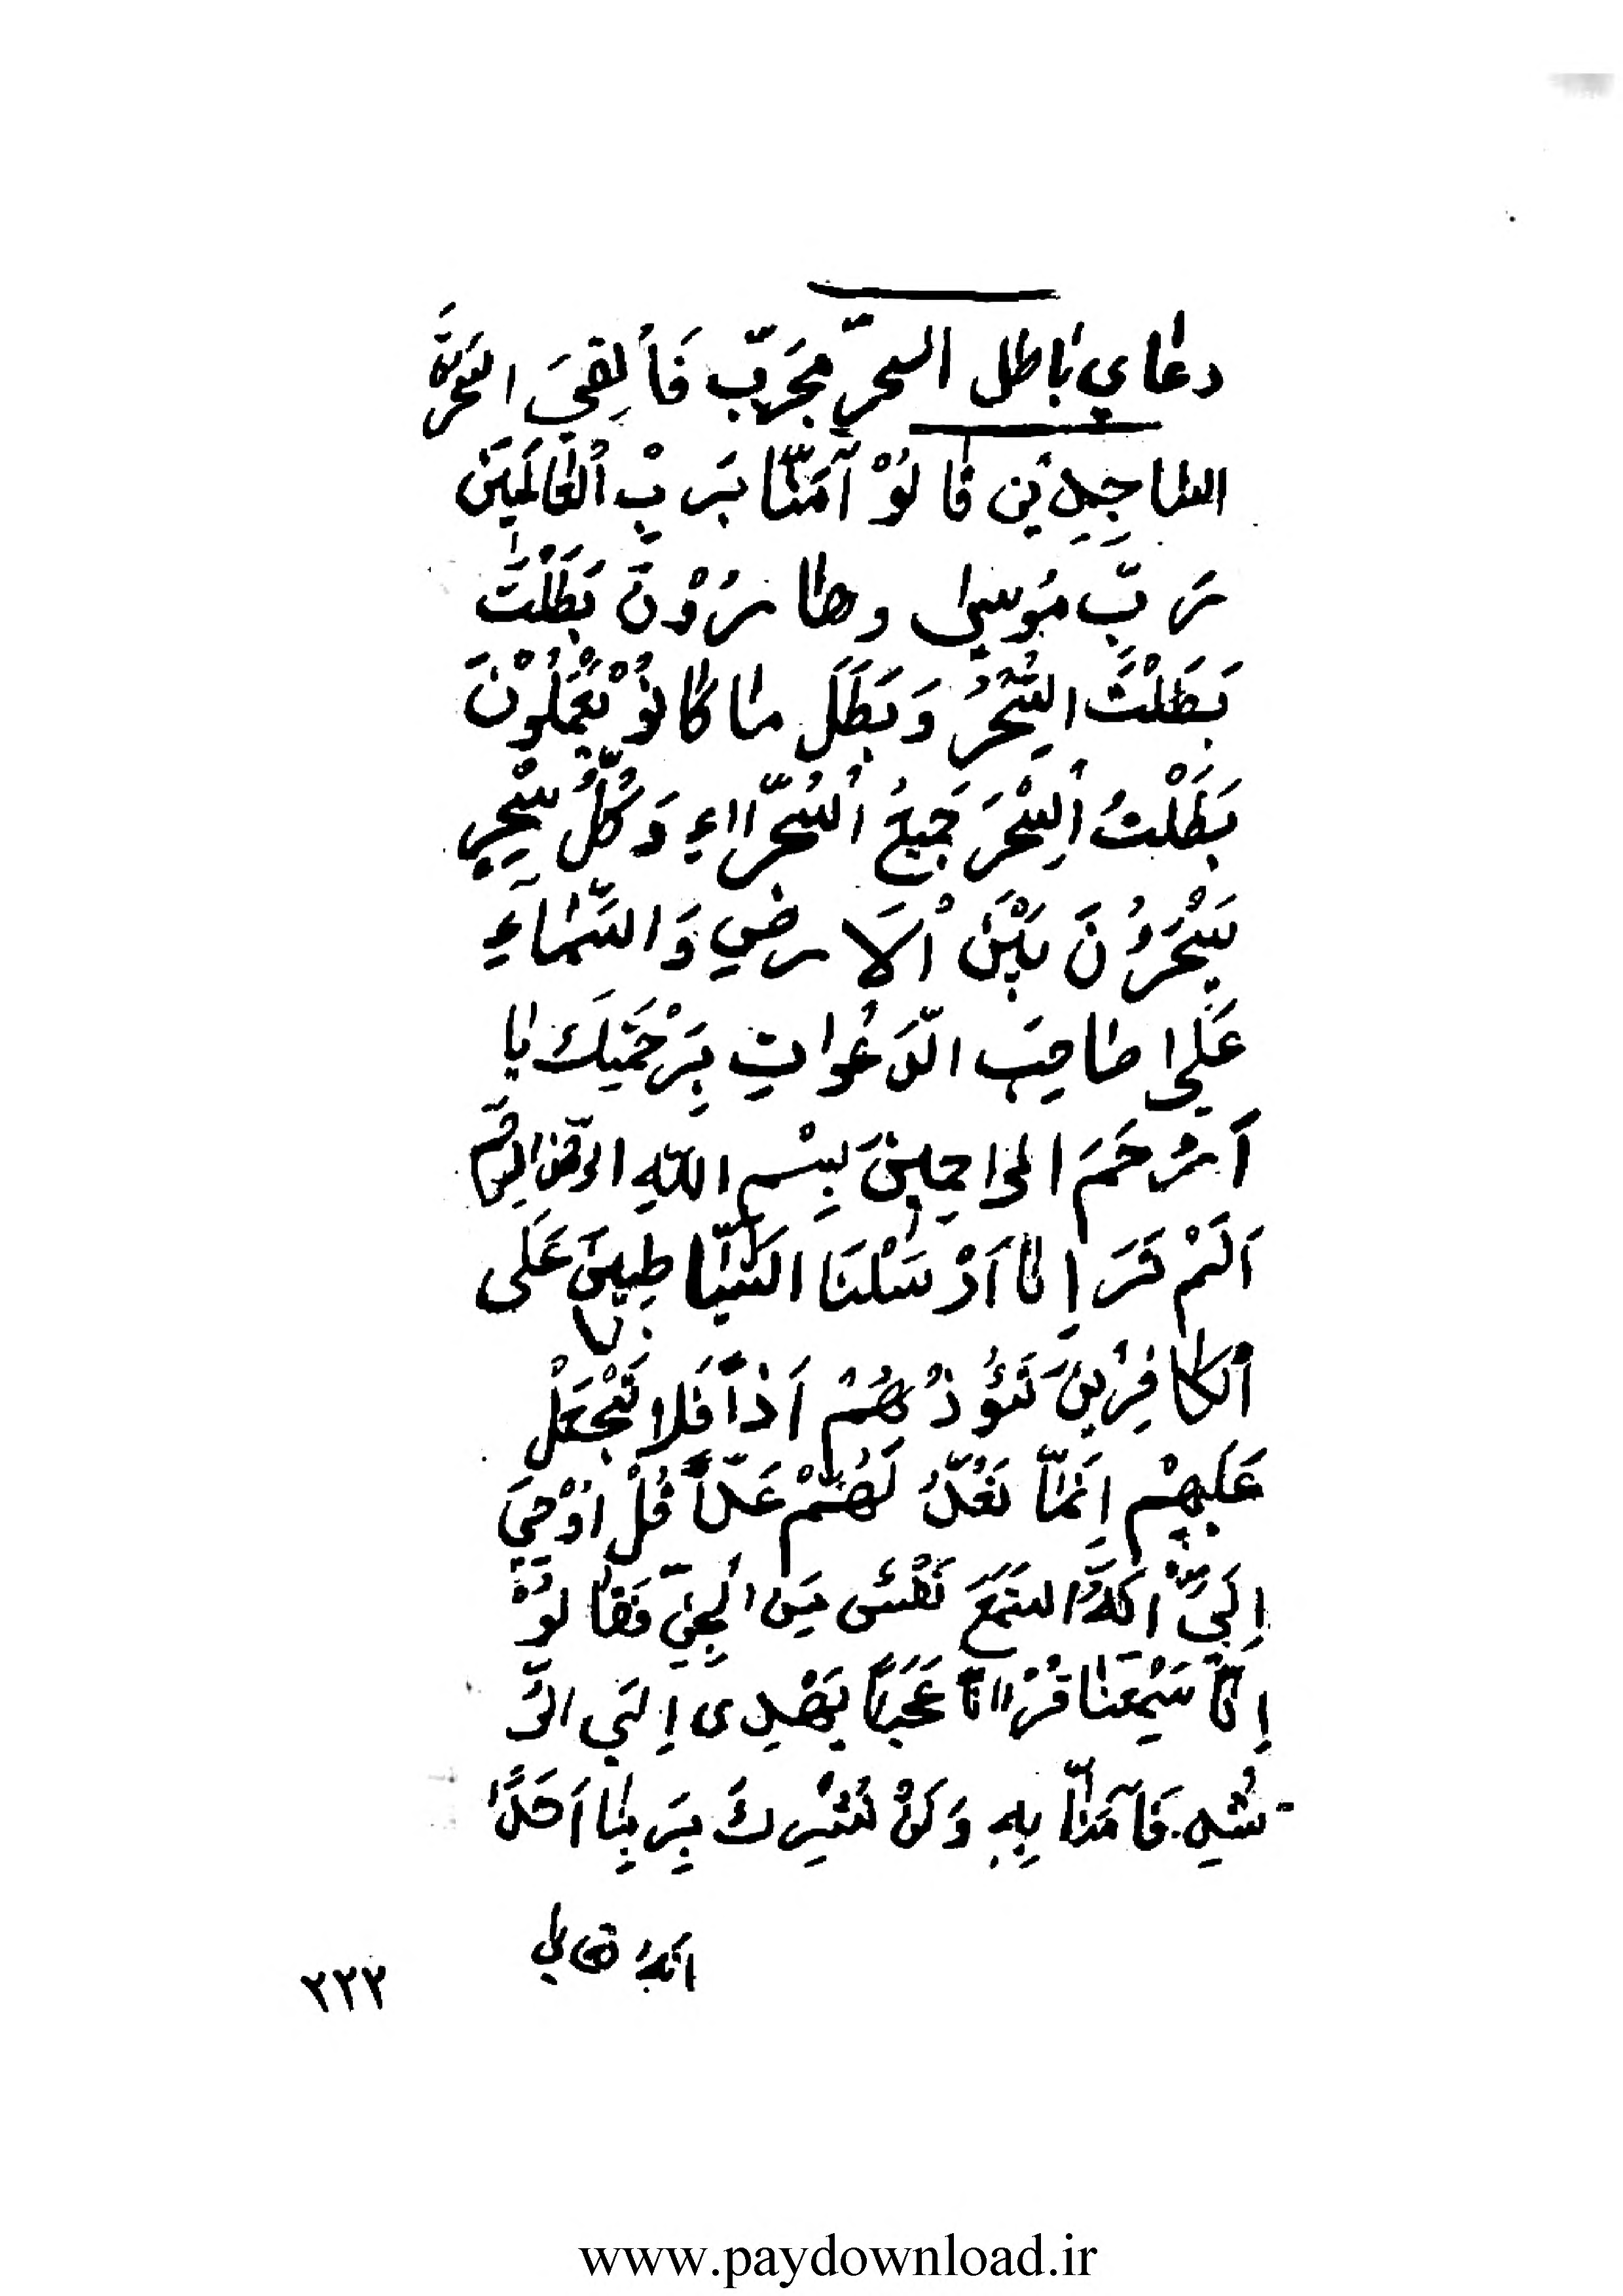 دعاي باطل السحرّ مجرّب فَأُلقِيَ السَّحَرَة
الساجِدِين قالُوْ آمَنّا بَرَبِّ اْلعٰالَمِينَ
رَبّ مُوسیٰ وهارُوْنَ بَطَلْتَ
بَطَلْتَ السِّحْرُ وَبَطَلَ ما كانُوْ يَعْمَلُوْنَ
بَطَلْتُ اُلسِحْرَ جَميعُ اُلسُحَّرااءِ وَكُلُّ سْحِرٍ
يَسْحَرُوُنَ بَيْنَ اْلاَرضِي وَالسَّمٰاءِ
عَلیٰ صٰاحِبَ الَّدَعُواتِ بِرَحْمَتِكَ يٰا
اَرْحَمَ الراحِمينَ بِسْمِ اللهِ الرَّحمٰنِ الرحيم
اَلَمْ تَرَ اِنّا اَرْسَلْنَا الشَّياطِينَ عَلَی
اْلكافِرِينَ تَئُوذُهُمْ اَذاً فَلا تَجْعَلْ
عَلَيهِمْ اِنَّمٰا نَعُدُّ لَهُمْ عَدّاً قُلْ اُوْحِيَ
اِلَيَّ اَنَّهُ استَمَعَ نَفْسٌ مِنَ الْجِنِّ فَقٰالُوْ
اِنّا سَمِعْنٰا قُرْاناً عَجَباً يَهْدِی اِلَی الرُّ
- شْدِ. فَآمَنّٰا بِهِ وَلَنْ نُشْرِكَ بِرَبِنٰا اَحَداً
انّهُ تعالی
٢٢٣
www.paydownload.ir